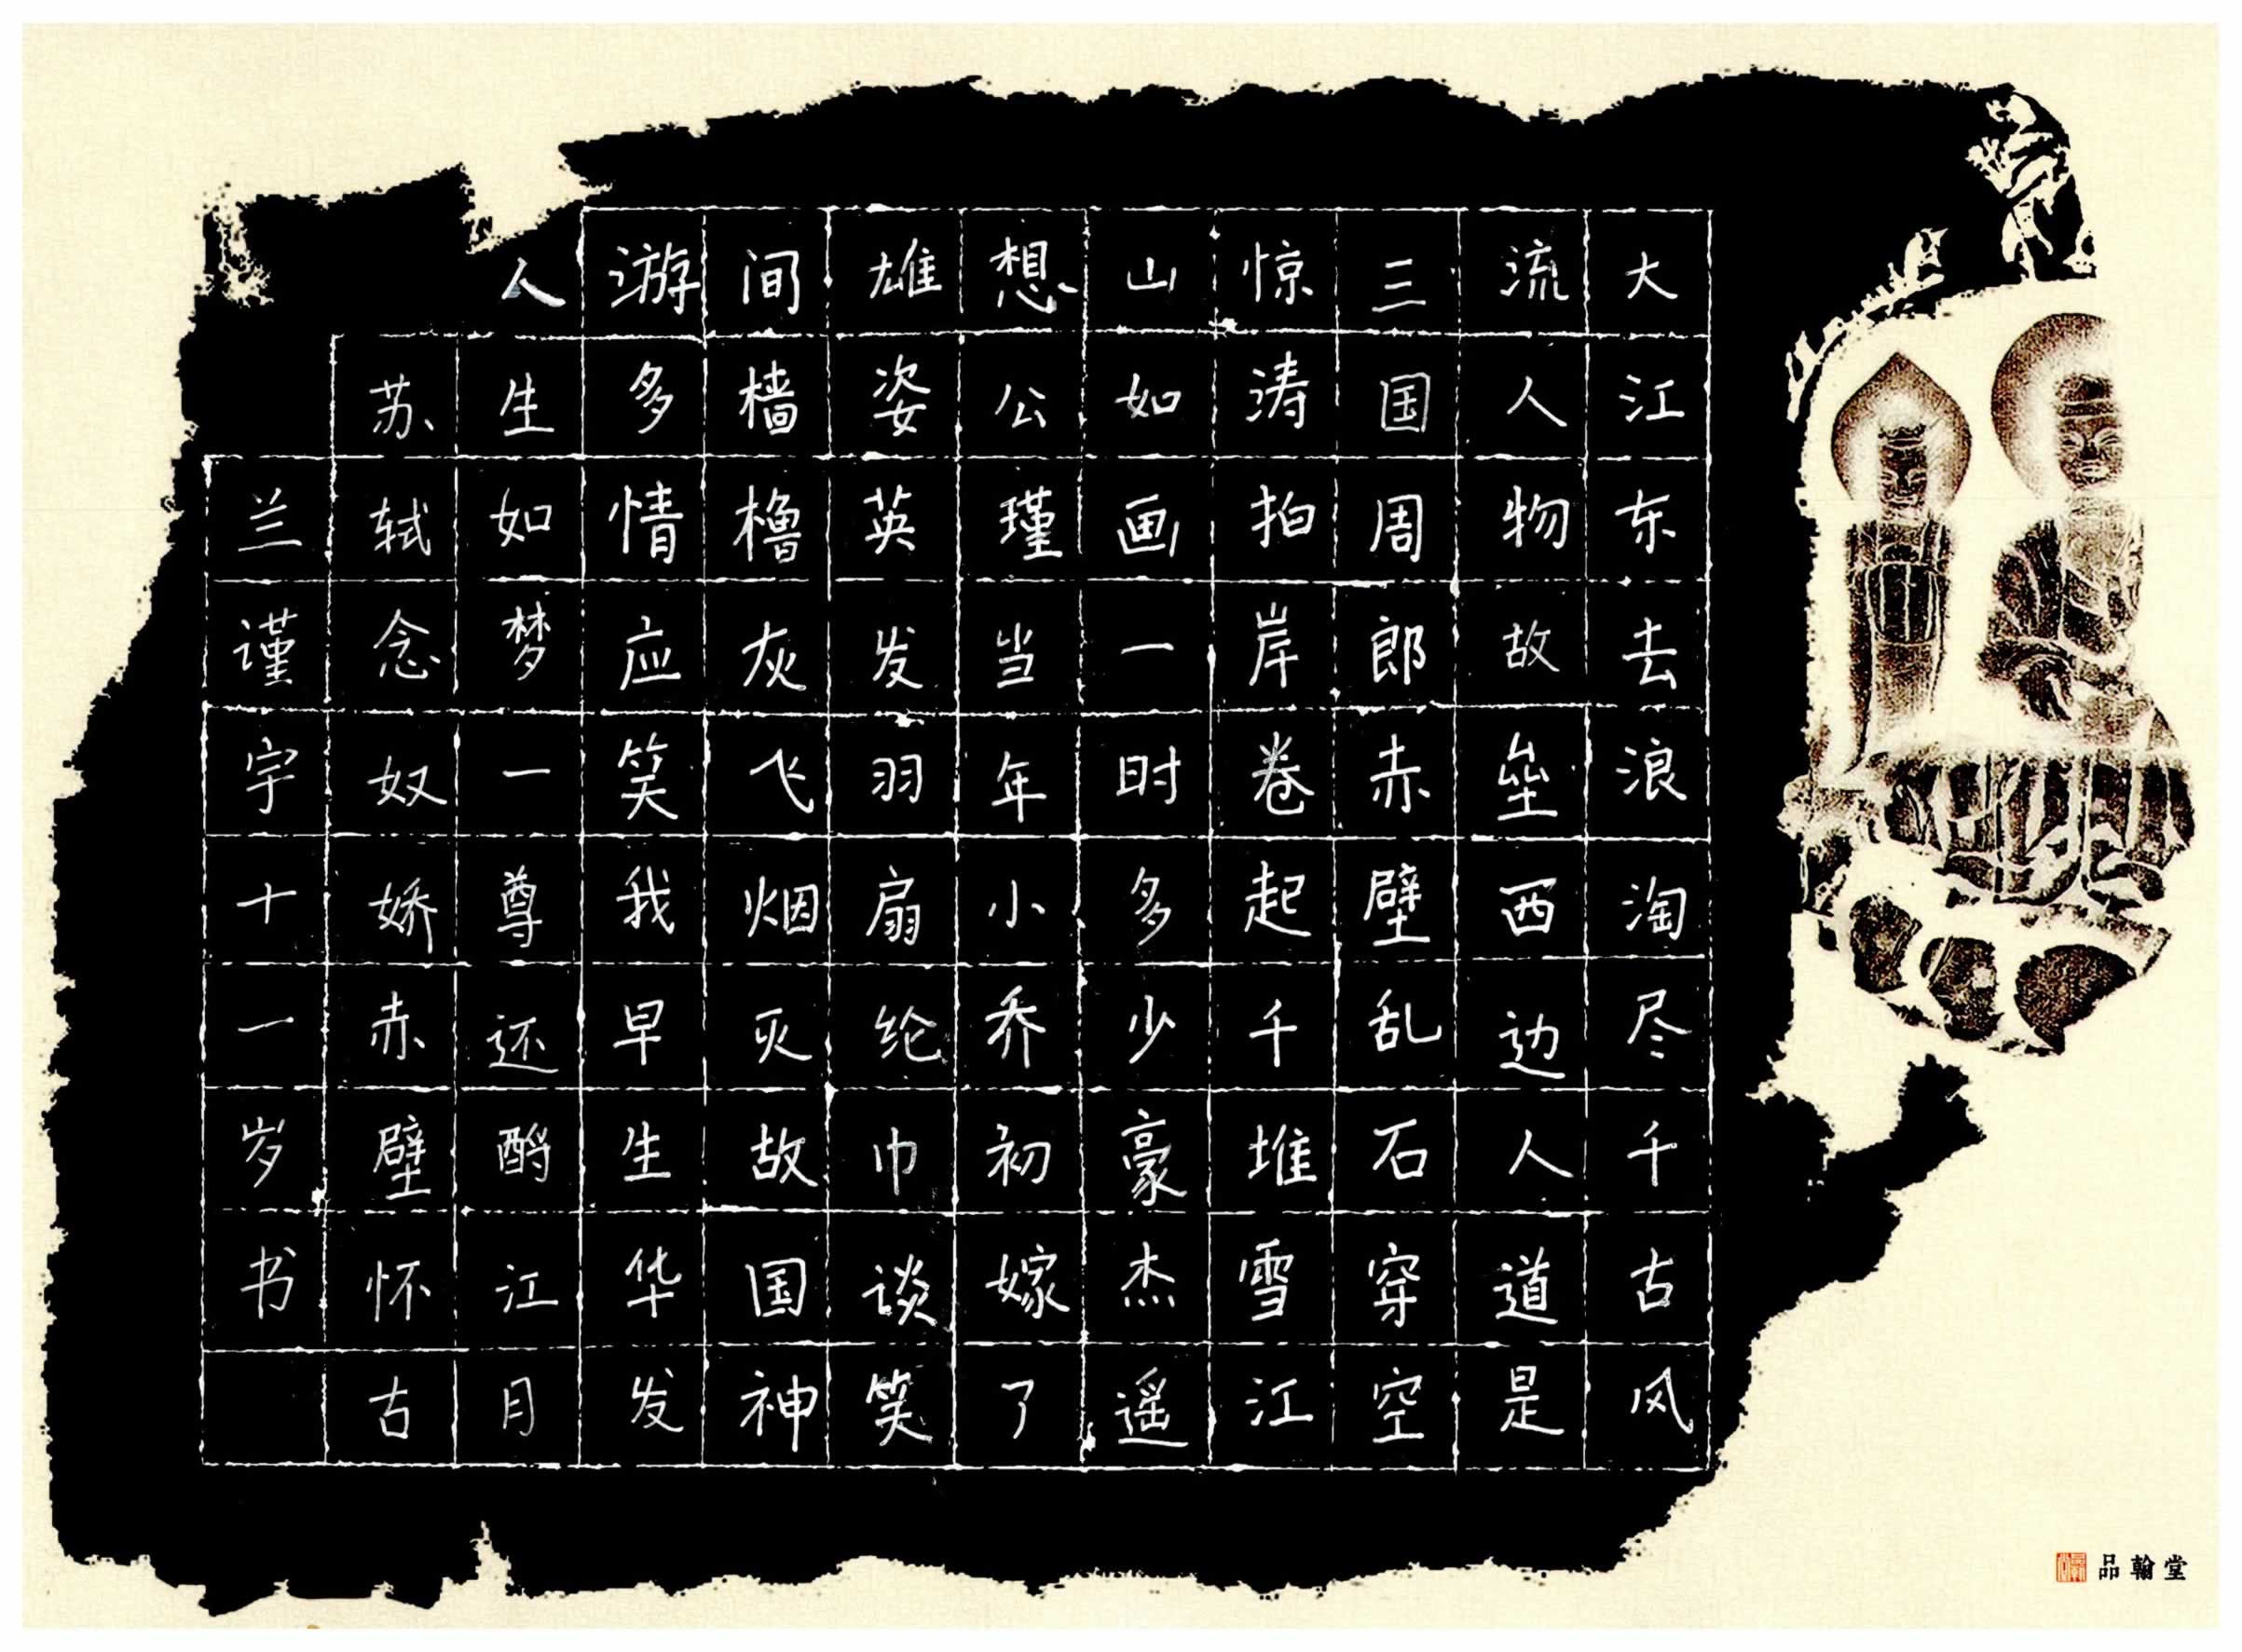 大江东去浪淘尽千古风
流人物故垒西边人道是
三国周郎赤壁乱石穿空
惊涛拍岸卷起千堆雪江
山如画一时多少豪杰遥
想公瑾当年小乔初嫁了
雄姿英发羽扇纶巾谈笑
间樯橹灰飞烟灭故国神
游多情应笑我早生华发
人生如梦一尊还酹江月
苏轼念奴娇赤壁怀古
兰谨宇十一岁书
品翰堂